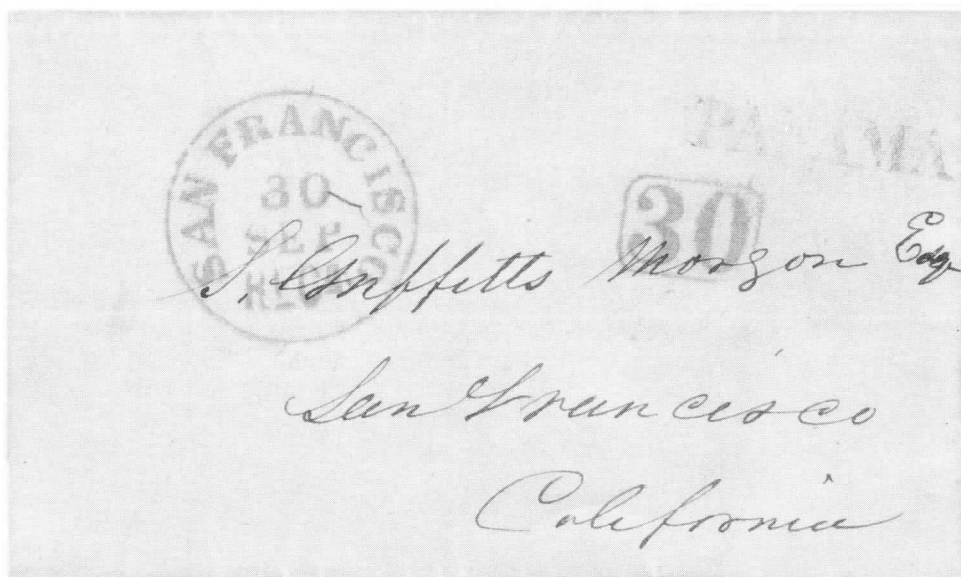 PANAMA
SAN FRANCISCO
30
SEP
30
S. Griffitts Morgan Esq
San Francisco
California